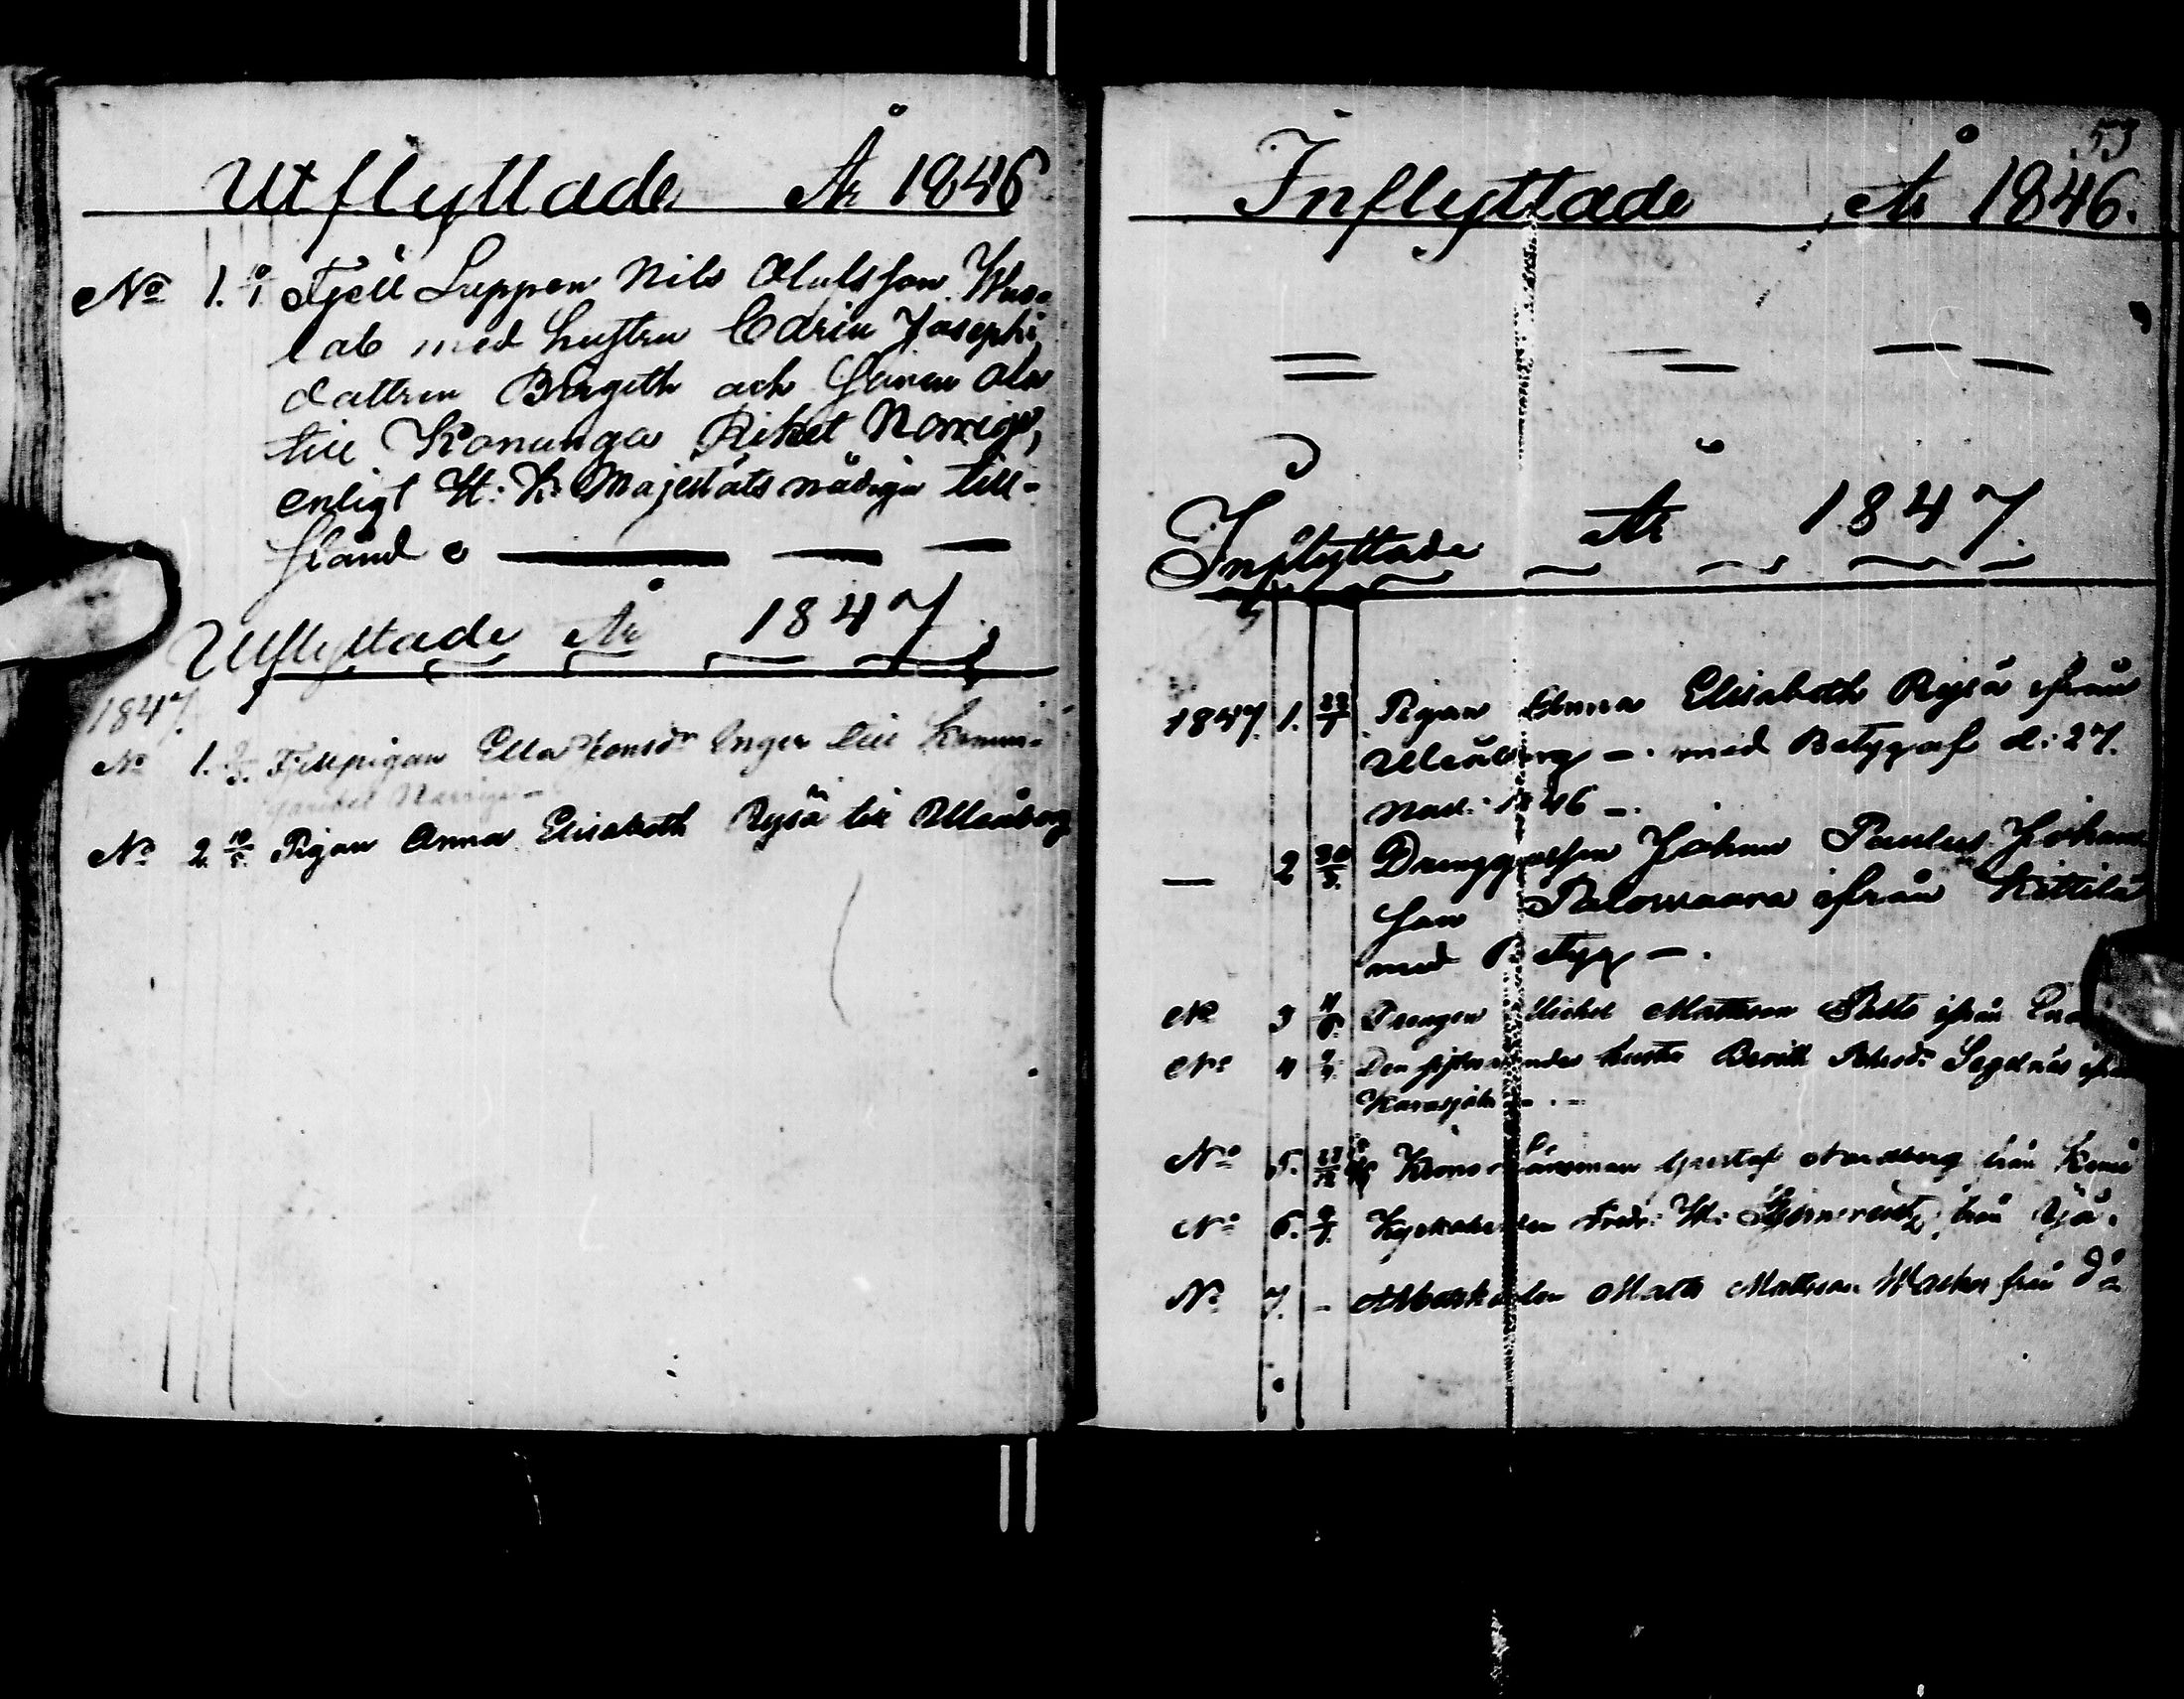 Utflyttade År 1846
No 1. 10/1 Fjell Lappen Nils Olufsson Wuo-
lab med hustru Cdrin Josephi
dattren Birgeth och Sonen Ola
till Konunga Riket Norrige,
enligt H: K: Majestäts nådiga till-
stånd
Utflyttade År 1847.
1847.
No 1. Fjellpigan Ella Jonsdr Inger till Konun-
gariket Norrige
No 2. 10/5. Pigan Anna Elisabeth Rysä till Uleåborg
53
Inflyttade År 1846.
Inflyttade År 1847.
1847. 1. Pigan Anna Elisabeth Rysä ifrån
Uleåborg med Betyg af d: 27.
1846
2 30/3. Drenggossen Johan Paulus Johans-
son Palowaara ifrån Kittilä
med Betyg
No 3 Drengen Michel Mattsson ifrån
No 4 hustru Berith Petersdr ifrån
Karasjoki
No 5. Krono Länsman Gustaf Nordberg från
No 6. Kyrkoherden Fredr: W: från
No 7. Mats Mattsson från Do